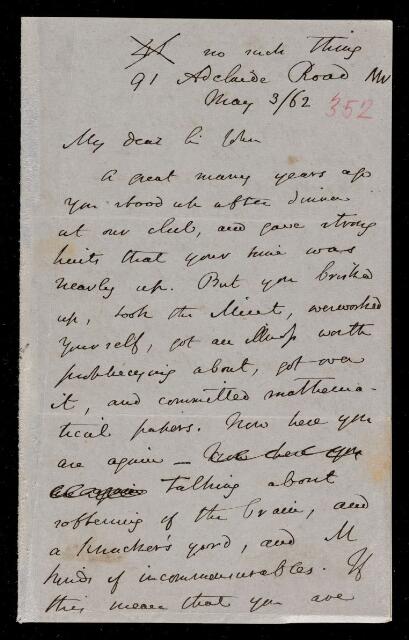 41 no such thing
91 Adelaide Road NW
May 3/62 352
My dear Sir John
A great many years ago
you stood up after dinner
at our club, and gave strong
hints that your time was
nearly up. But you brisked
up, took the Mint, overworked
yourself, got an illness worth
publishing about, got over
it, and committed mathema-
tical papers. Now here you
are again — Now here you
are again talking about
softening of the brain, and
a knacker's yard, and all
kinds of incommensurables. If
this mean that you are